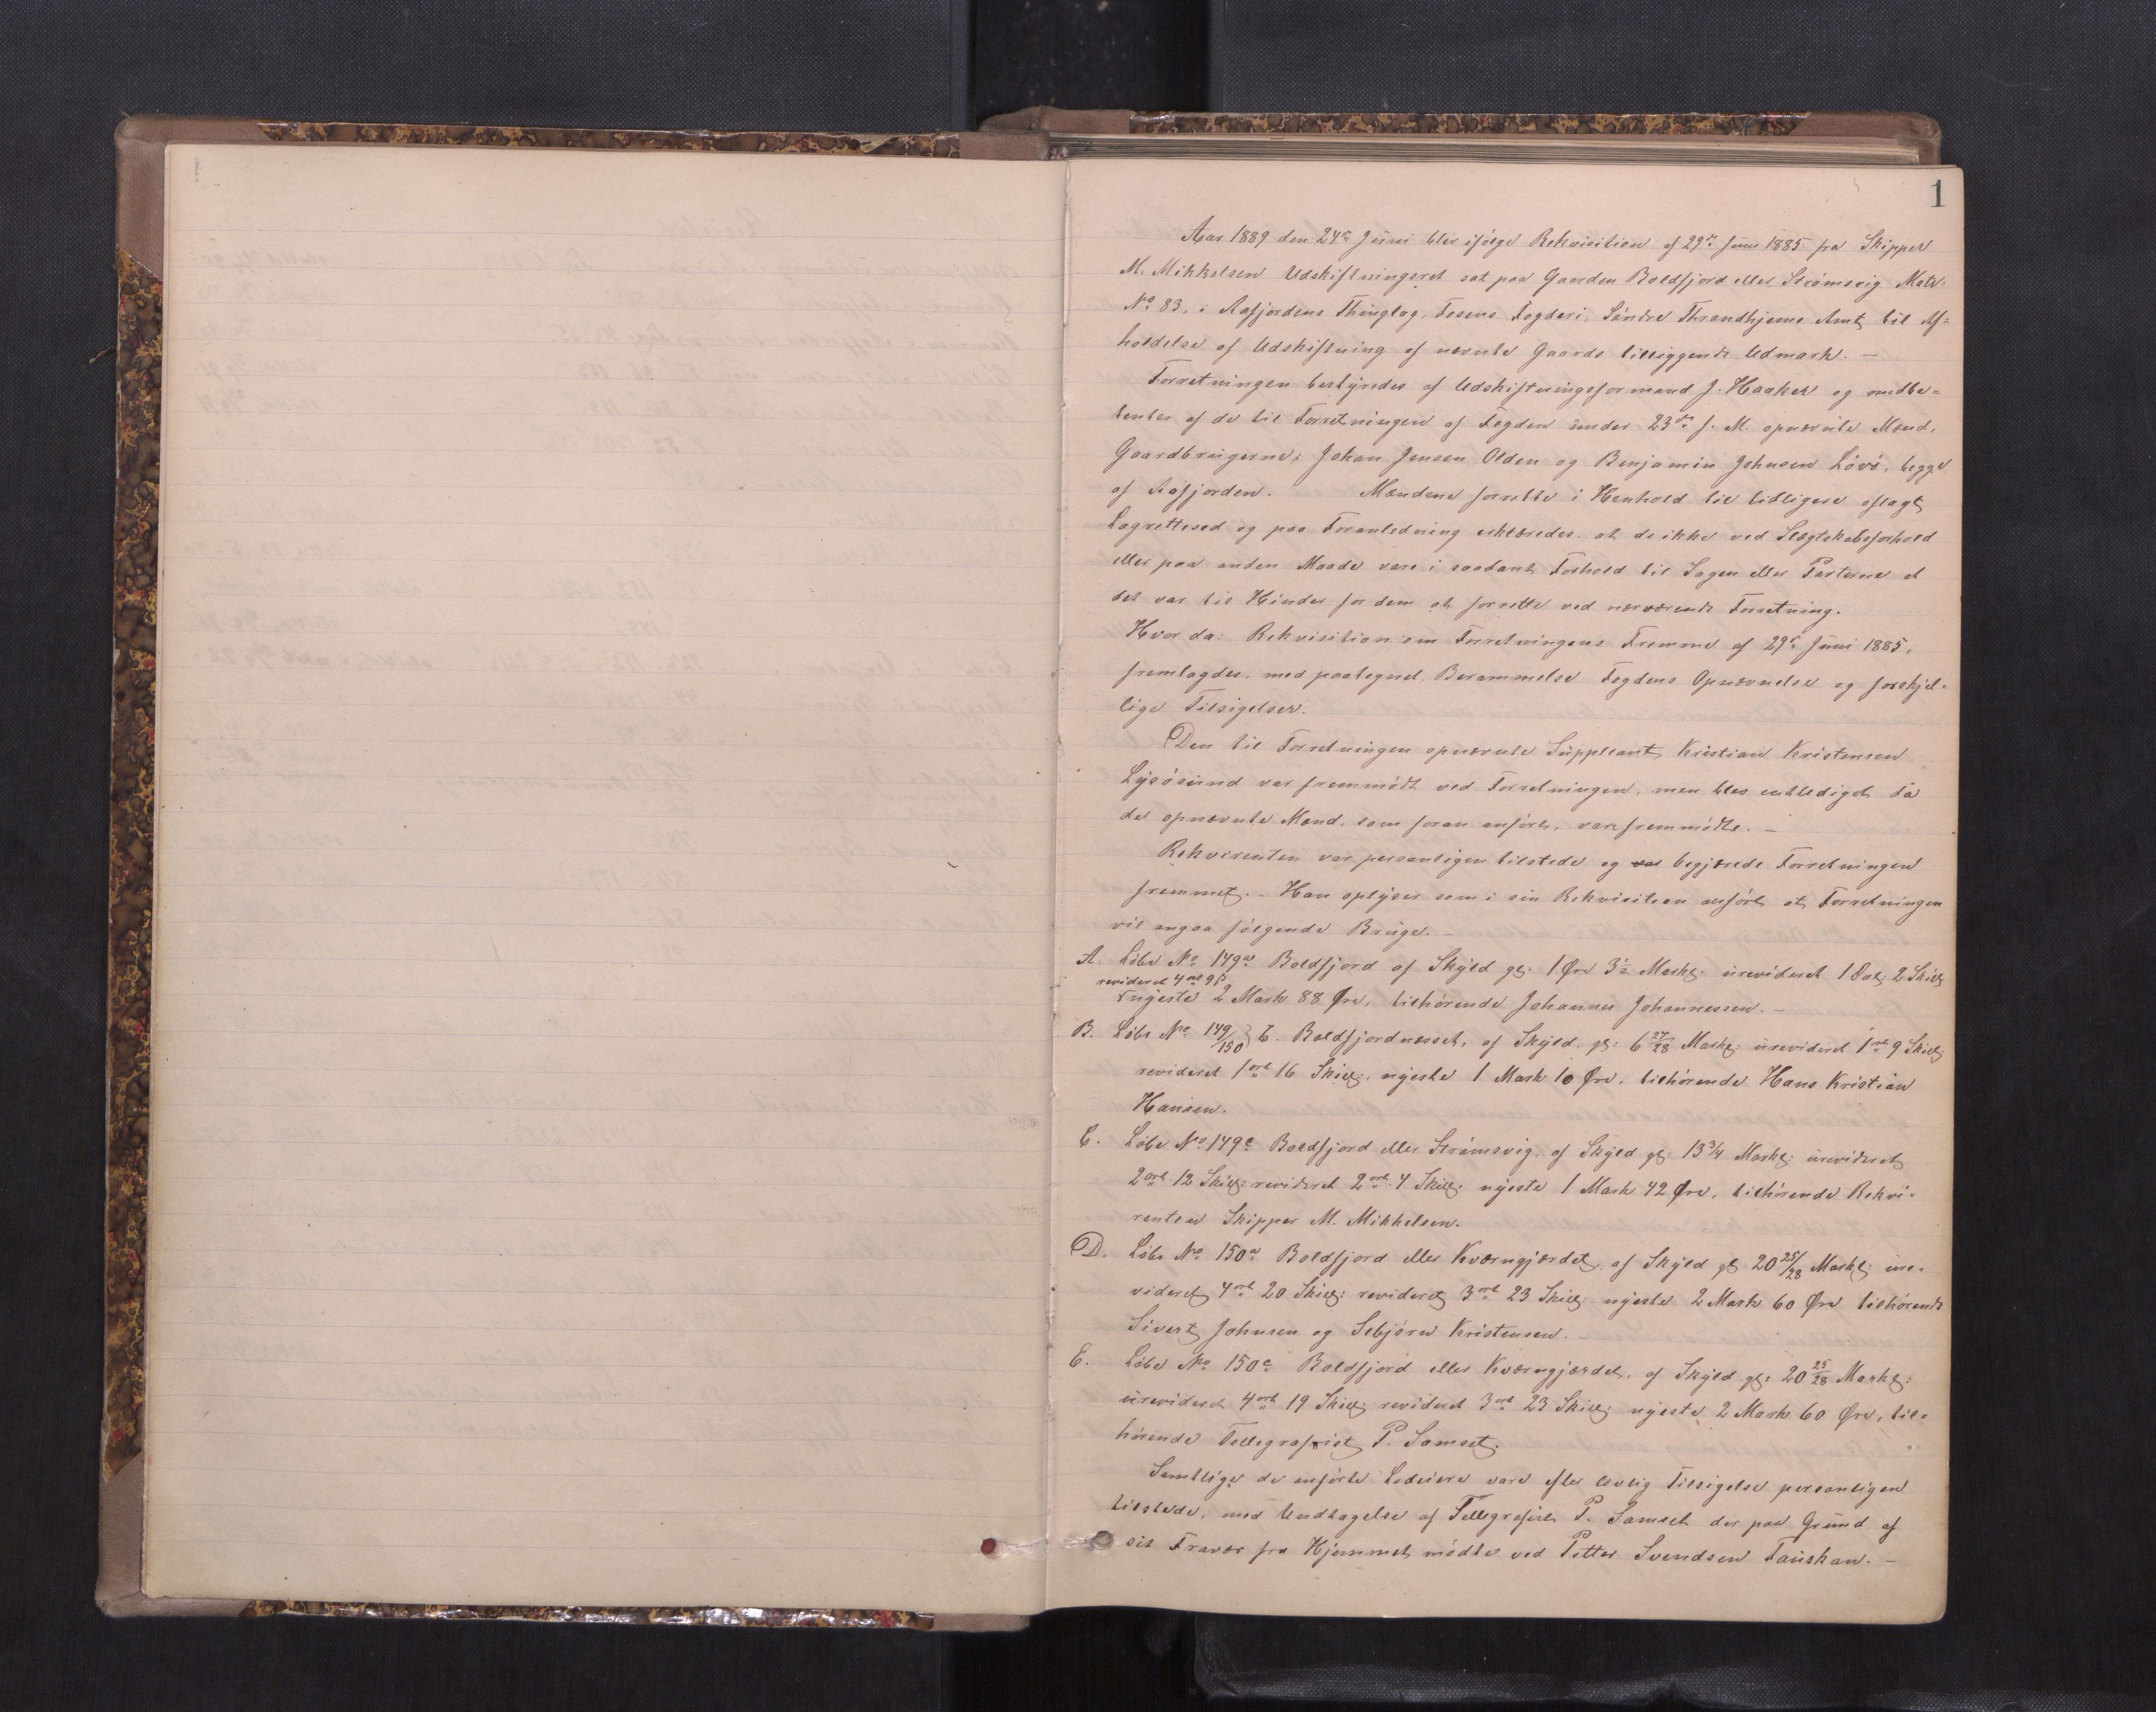 1
Aar 1889 den 24de Juni blev ifølge Rekvisition af 29de Juni 1885 fra Skipper
M. Mikkelsen Udskiftningsret sat paa Gaarden Boldfjord eller Strømsvig Matr:
No 83, i Aafjordens Thinglag, Fosens Fogderi, Søndre Throndhjems Amt til Af=
holdelse af Udskiftning af nævnte Gaards tilliggende Udmark. —
Forretningen bestyredes af Udskiftningsformand J. Haaker og medbe=
tentes af de til Forretningen af Fogden under 23de f. M. opnævnte Mænd,
Gaardbrugerne; Johan Jensen Olden og Benjamin Johnsen Løvø, begge
af Aafjorden. Mændene forrette i Henhold til tidligere aflagt
Lagrettesed og paa Foranledning erklæredes at de ikke ved Slægtskabsforhold
eller paa anden Maade vare i saadant Forhold til Sagen eller Parterne at
det var til Hinder for dem at forrette ved nærværende Forretning.
Hvor da: Rekvisition om Forretningens Fremme af 29de Juni 1885,
fremlagdes, med paategned Berammelse Fogdens Opnævnelse og forskjel=
lige Tilsigelser.
Den til Forretningen opnævnte Suppleant Kristian Kristensen
Lysøsund var fremmødt ved Forretningen, men blev entlediget da
de opnævnte Mænd, som foran anført, vare fremmødte. —
Rekvirenten var personligen tilstede og var begjærede Forretningen
fremmet. — Han oplyser som i sin Rekvisition anført at Forretningen
vil angaa følgende Bruge. —
A. Løbe No 149a Boldfjord af Skyld gl: 1 Øre 3½ Markl: urevideret 1 Dal: 2 Skill
revideret 4 ort 9 ß
nyeste 2 Mark 88 Øre, tilhørende Johannes Johannessen. —
B. Løbe No 149/150 } C. Boldfjordnesset, af Skyld gl: 6 27/28 Markl: urevideret 1 ort 9 Skill
revideret 1 ort 16 Skill:, nyeste 1 Mark 10 Øre, tilhørende Hans Kristian
Hansen.
C. Løbe No 149c Boldfjord eller Strømsvig, af Skyld gl: 13¾ Markl: urevideret
2 ort 12 Skill: revideret 2 ort 4 Skill: nyeste 1 Mark 42 Øre, tilhørende Rekvi=
renten Skipper M. Mikkelsen.
D. Løbe No 150a Boldfjord eller Kværngjærdet af Skyld gl 20 25/28 Markl: ure=
videret 4 ort 20 Skill: revideret 3 ort 23 Skill: nyeste 2 Mark 60 Øre tilhørende
Sivert Johnsen og Sebjørn Kristensen. —
E. Løbe No 150c Boldfjord eller Kværngjærdet, af Skyld gl: 20 25/28 Markl:
urevideret 4 ort 19 Skill: revideret 3 ort 23 Skill: nyeste 2 Mark 60 Øre, til=
hørende Tellegrafist P. Samset.
Samtlige de anførte Lodeiere vare efter lovlig Tilsigelse personligen
tilstede, med Undtagelse af Tellegrafist P. Samset der paa Grund af
sit Fravær fra Hjemmet mødte ved Petter Svendsen Fauskan. —